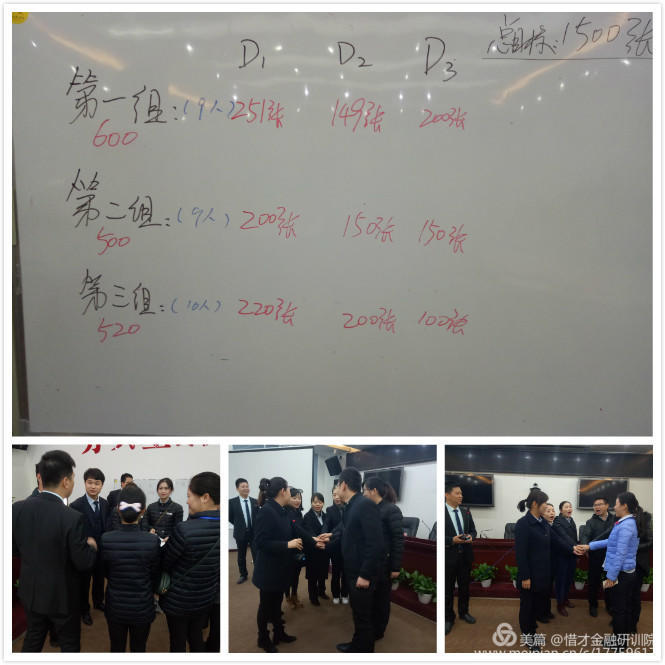 总目标:1500张
D1 D2 D3
第一组:(9人) 251张 149张 200张
600
第二组:(9人) 200张 150张 150张
500
第三组:(10人) 220张 200张 100张
520
美篇 @惜才金融研训院